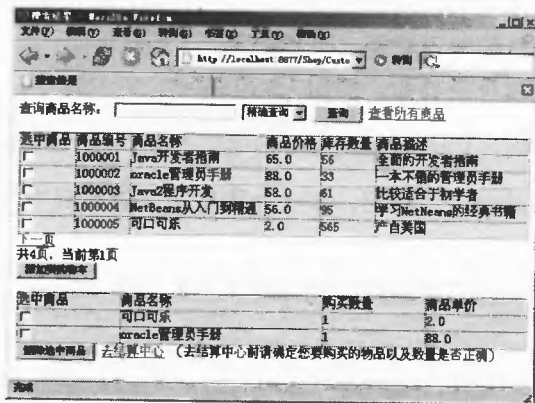 搜索结果 - Mozilla Firefox
文件(F) 编辑(E) 查看(V) 转到(G) 书签(B) 工具(T) 帮助(H)
http://localhost:8077/Shop/Custo 转到
搜索结果
查询商品名称: 精确查询 查询 查看所有商品
选中商品 商品编号 商品名称 商品价格 库存数量 商品描述
1000001 Java开发者指南 65.0 56 全面的开发者指南
1000002 oracle管理员手册 88.0 33 一本不错的管理员手册
1000003 Java2程序开发 58.0 61 比较适合于初学者
1000004 NetBeans从入门到精通 56.0 95 学习NetNeans的经典书籍
1000005 可口可乐 2.0 565 产自美国
下一页
共4页, 当前第1页
添加到购物车
选中商品 商品名称 购买数量 商品单价
可口可乐 1 2.0
oracle管理员手册 1 88.0
删除选中商品 去结算中心 (去结算中心前请确定您要购买的物品以及数量是否正确)
完成